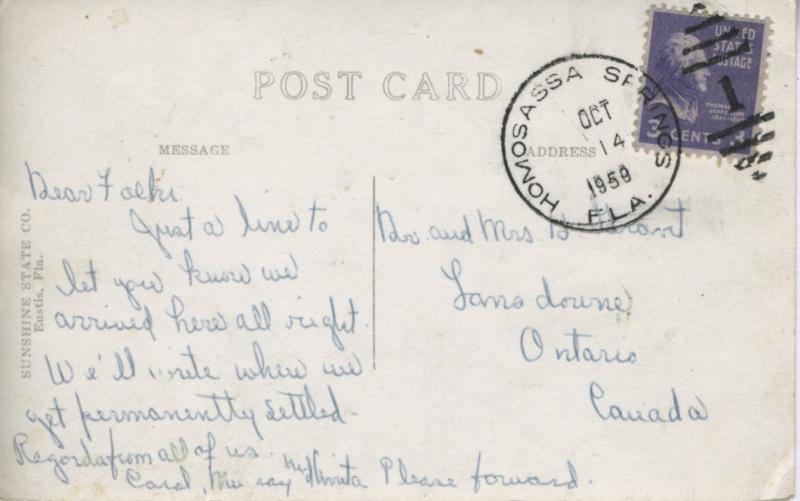 POST CARD
UNITED
STATES
POSTAGE
THOMAS
JEFFERSON
3 CENTS 3
1
HOMOSASSA SPRINGS
OCT
14
1958
FLA.
MESSAGE
ADDRESS
SUNSHINE STATE CO.
Eustis, Fla.
Dear Folks
Just a line to
let you know we
arrived here all right.
We'll write when we
get permanently settled.
Regards from all of us.
Carol,
Please forward.
Dr. and Mrs. B
Lansdowne
Ontario
Canada